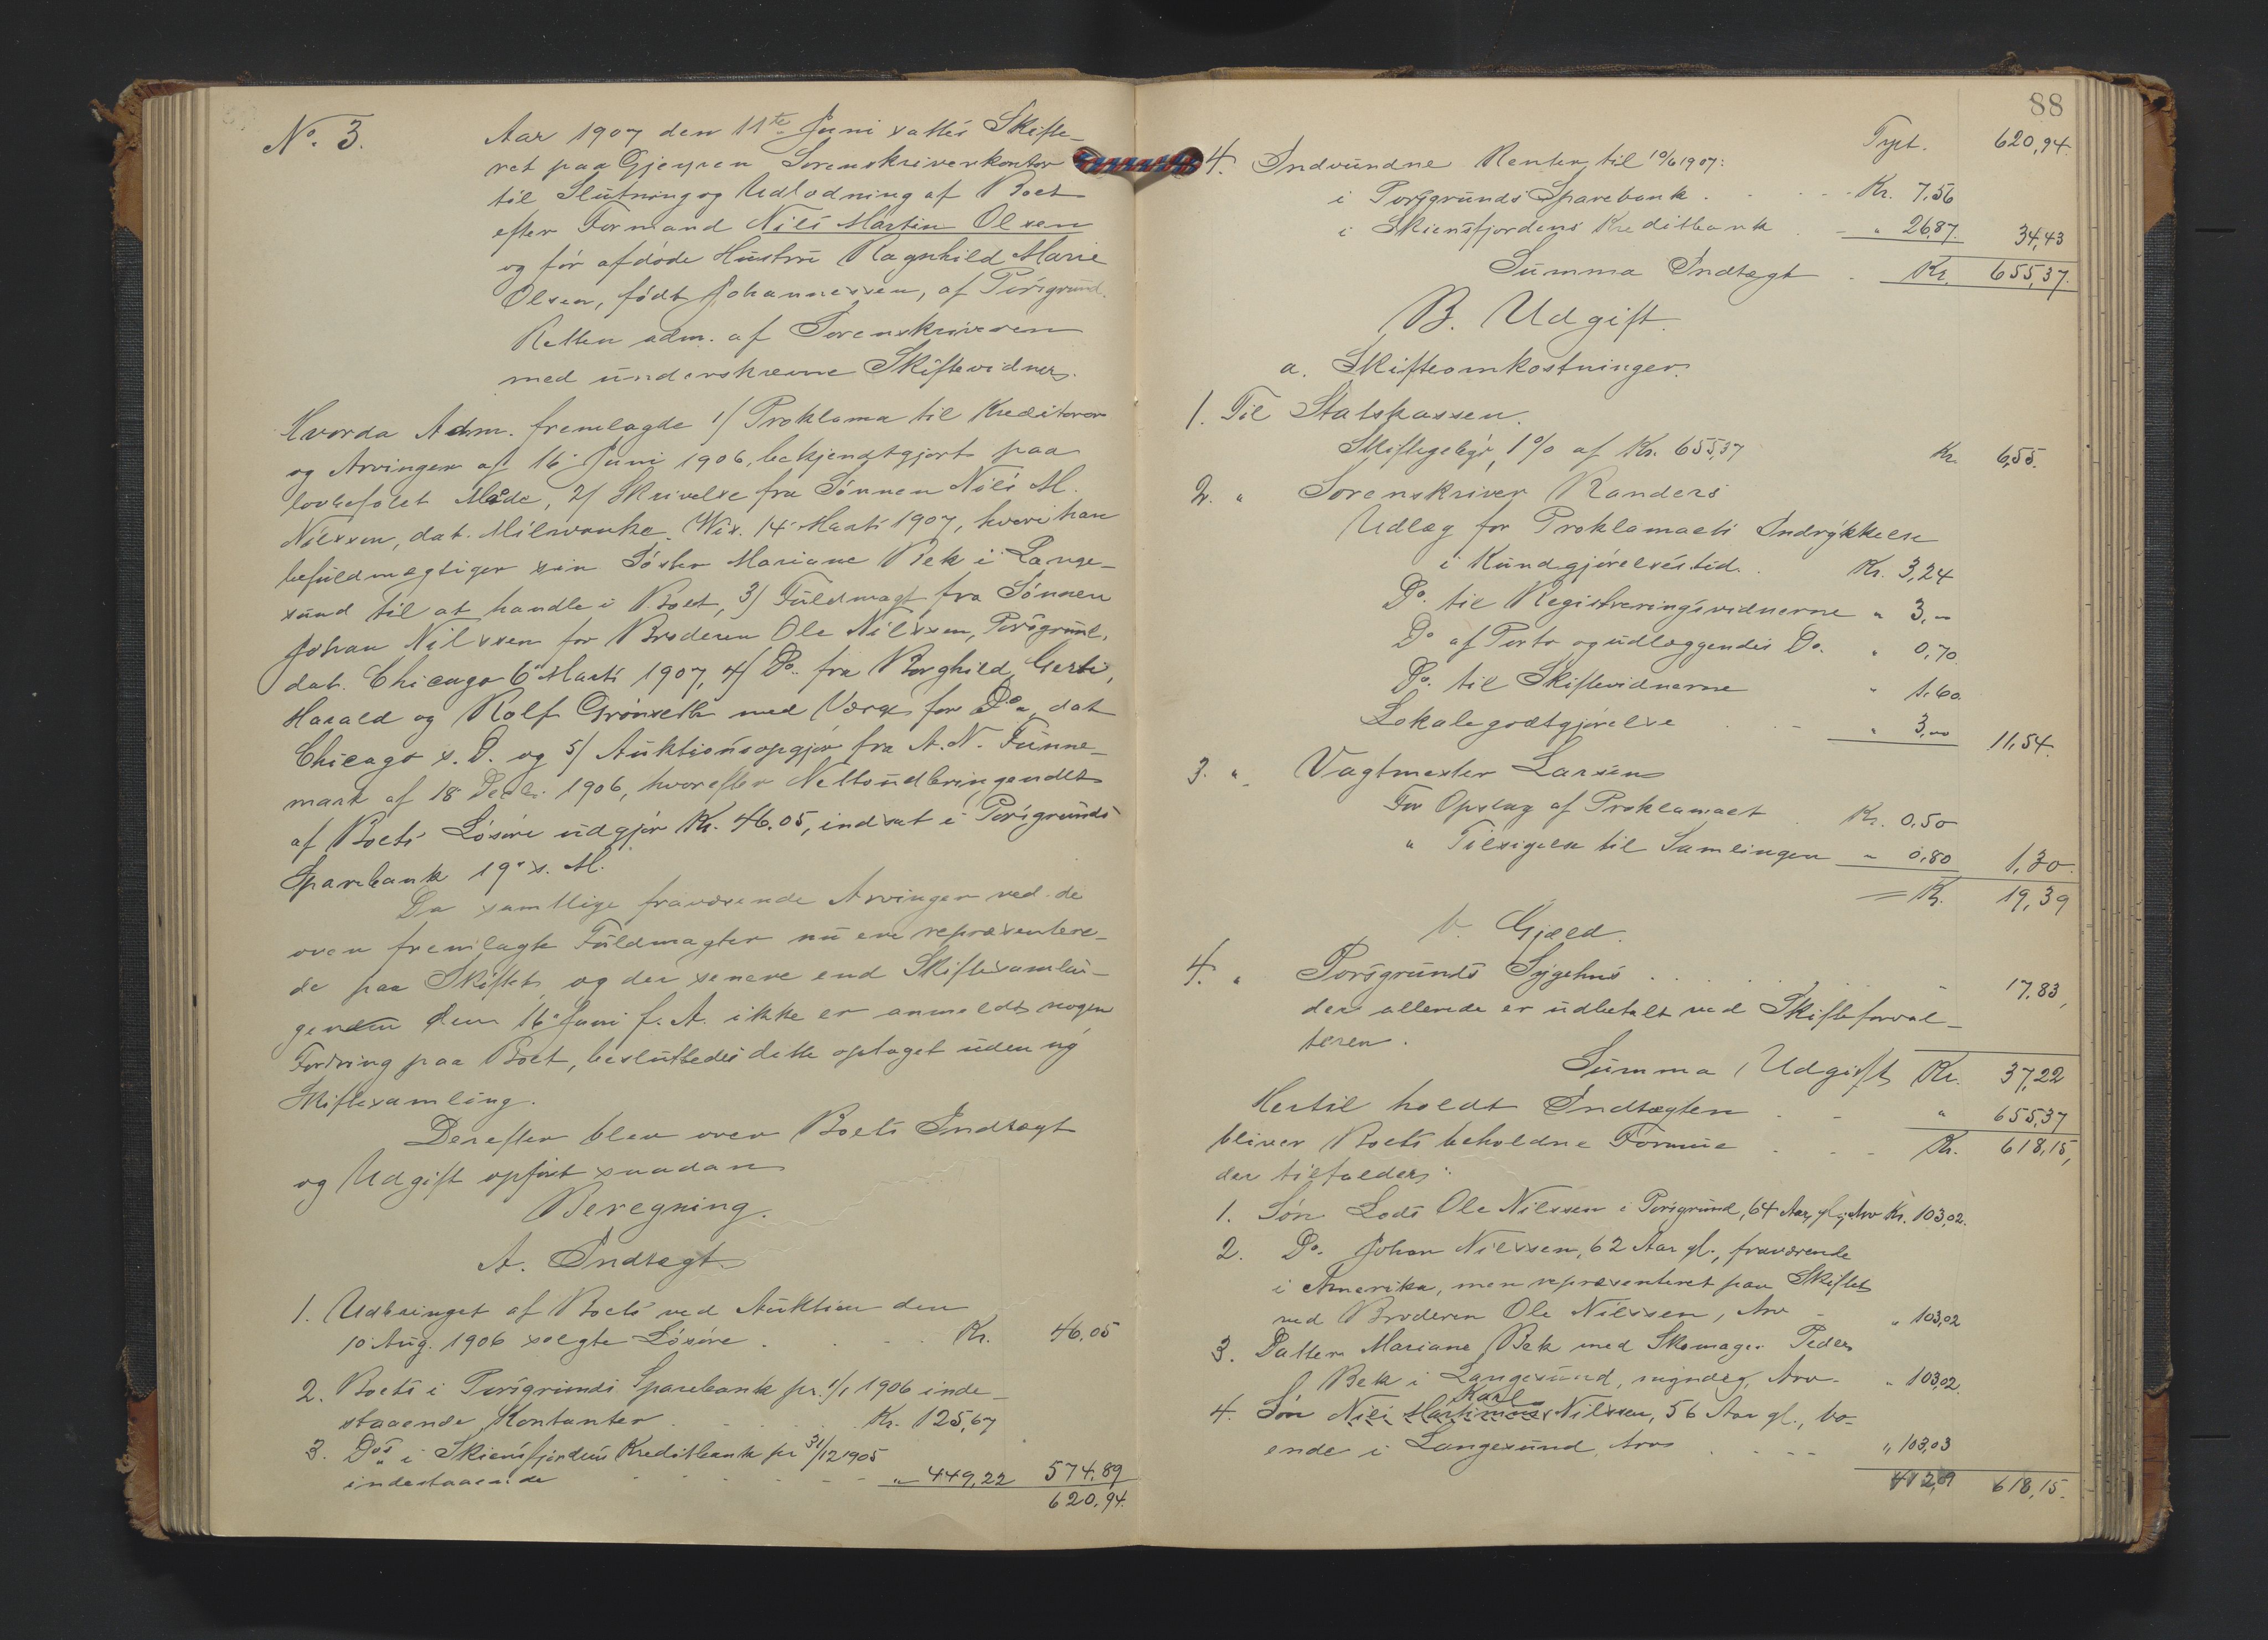 No. 3.
Aar 1907 den 11te Juni sattes Skifte-
ret paa Gjerpen Sorenskriverkontor
til Slutning og Udlodning af Boet
efter Formand Nils Martin Olsen
og før afdøde Hustru Ragnhild Marie
Olsen, født Johannessen, af Porsgrund.
Retten adm. af Sorenskriveren
med underskrevne Skiftevidner.
Hvorda Adm. fremlagde 1/ Proklama til Kreditorer
og Arvinger af 16. Juni 1906, bekjendtgjort paa
lovbefalet Måde, 2/ Skrivelse fra Sønnen Nils M.
Nilssen, dat. Milwauke. Wis. 14. Marts 1907, hvori han
befuldmægtiger sin Søster Mariane Bek i Lange-
sund til at handle i Boet, 3/ Fuldmagt fra Sønnen
Johan Nilssen for Broderen Ole Nilssen, Porsgrund,
dat. Chicago 6. Marts 1907, 4/ Do. fra Borghild,
Harald og Rolf Grønseth med Værge for Do., dat
Chicago s. D. og 5/ Auktionsopgjør fra A. N. Funne-
mark af 18 Decbr. 1906, hvorefter Nettoudbringendet
af Boets Løsøre udgjør Kr. 46.05, indsat i Porsgrunds
Sparebank 19. s. M.
Da samtlige fraværende Arvinger ved de
oven fremlagte Fuldmagter nu ere repræsentere-
de paa Skiftet og der senere end Skiftesamlin-
gen den 16. Juni f. A. ikke er anmeldt nogen
Fordring paa Boet, besluttedes dette optaget uden ny
Skiftesamling.
Derefter blev over Boets Indtægt
og Udgift opført saadan
Beregning.
A. Indtægt
1. Udbringet af Boets ved Auktion den
10 Aug. 1906 solgte Løsøre . . . Kr. 46.05
2. Boets i Porsgrunds Sparebank pr. 1/1 1906 inde-
staaende Kontanter . . . Kr. 125,67
3. Dos i Skiensfjordens Kreditbank pr 31/12 1905
indestaaende - - - „ 449,22 574,89
620,94.
88
Tpt. 620,94.
4. Indvundne Renter til 10/6 1907:
i Porsgrunds Sparebank . - - Kr. 7,56
i Skiensfjordens Kreditbank . - „ 26,87. 34,43
Summa Indtægt - Kr. 655,37.
B. Udgift.
a. Skifteomkostninger.
1. Til Statskassen.
Skiftegebyr, 1% af Kr. 655,37 Kr. 6,55.
2. „ Sorenskriver Randers
Udlæg for Proklamaets Indrykkelse
i Kundgjørelsestid. . Kr. 3,24
Do. til Registreringsvidnerne „ 3,00
Do af Porto og udlæggendes Do. „ 0,70.
Do. til Skiftevidnerne „ 1.60
Lokalegodtgjørelse . . - „ 3,00 11,54.
3. „ Vagtmester Larsen
For Opslag af Proklamaet . Kr. 0.50
„ Tilsigelse til Samlingen - „ 0,80 1,30.
= Kr. 19,39
b. Gjæld.
4. „ Porsgrunds Sygehus . . . . . . - 17,83,
der allerede er udbetalt ved Skifteforval-
teren.
Summa Udgift Kr. 37,22
Hertil holdt Indtægten . - „ 655,37
bliver Boets beholdne Formue . - - Kr. 618,15,
der tilfalder:
1. Søn Lods Ole Nilssen i Porsgrund, 64 Aar gl., Arv Kr. 103,02.
2. Do. Johan Nilssen, 62 Aar gl., fraværende
i Amerika, men repræsenteret paa Skiftet
ved Broderen Ole Nilssen, Arv - „ 103,02
3. Datter Mariane Bek med Skomager Peder
Bek i Langesund, myndig, Arv - „ 103,02.
Karl
4. Søn Nils Martinius Nilssen, 56 Aar gl., bo-
ende i Langesund, Arv . - - - „ 103,03
412,09 618,15.